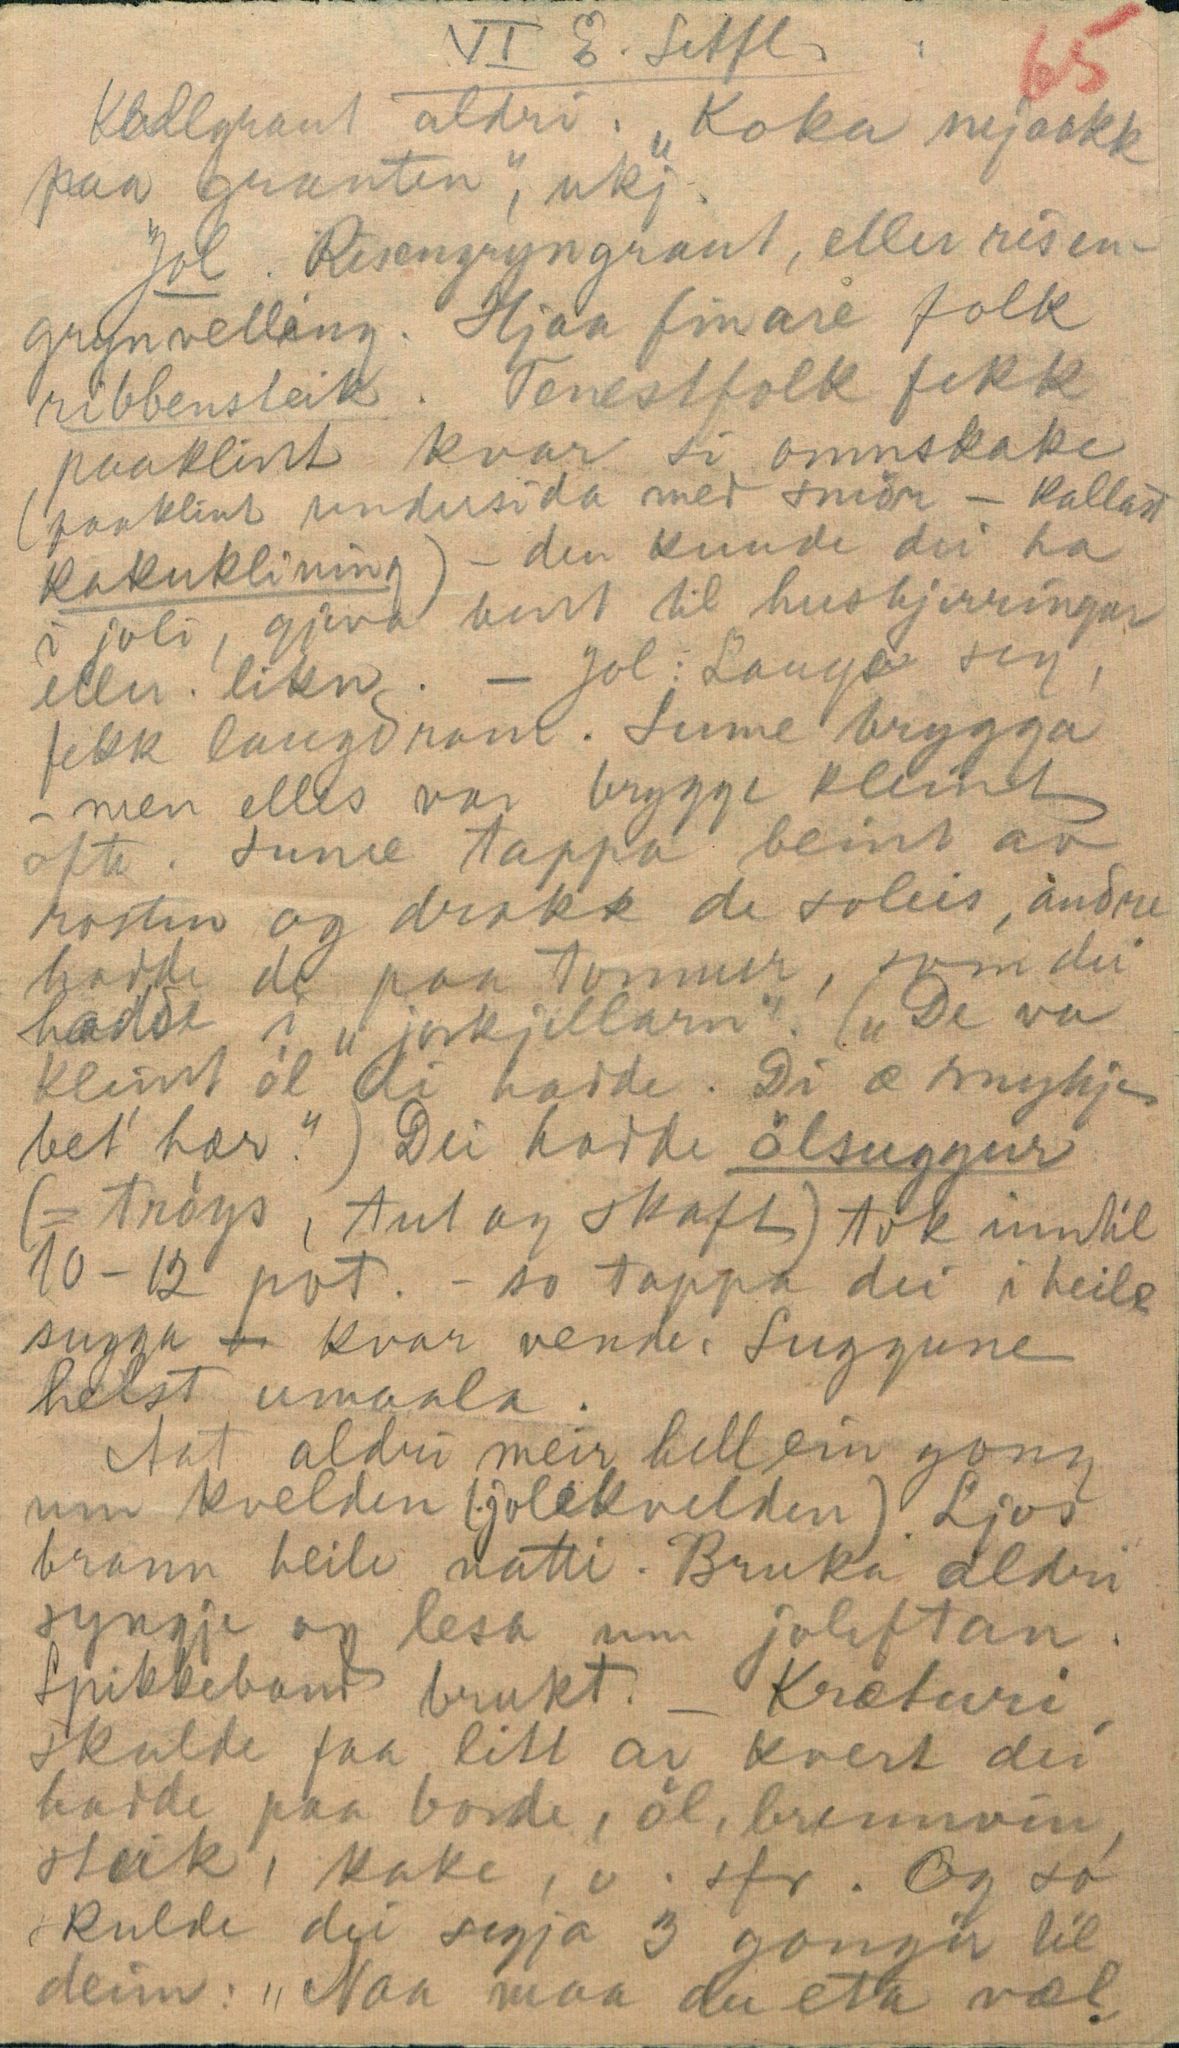 VI E. Setfl.
65
Kallgraut aldri. "Koka mejaakk
paa grauten", ukj.
Jol. Risengryngraut, eller risen-
grynvelling. Hjaa finare folk
ribbensteik. Tenestfolk fekk
paaklint kvar si omnskake
(paaklint undersida med smör – kallast
kakuklining) – den kunde dei ha
i joli, gjeva burt til huskjerringar
eller likn. – Jol: Lauga seg,
fekk laugdram. Sume brygga
– men elles var brygge kleint
ofte. Sume tappa beint av
rosten og drakk de soleis, andre
hadde de paa tonnur, som dei
hadde i "jorkjellarn". ("De va
kleint öl di hadde. Di æ mykje
bet' hær.") Dei hadde ölsuggur
(= tröys, tut og skaft) tok inntil
10–12 pot. – so tappa dei i heile
sugga – kvar vende. Suggune
helst umaala.
Aat aldri meir hell ein gong
um kvelden (jolekvelden). Ljos
brann heile natti. Bruka aldri
syngje og lesa um joleftan.
Spikkeband brukt. – Kræturi
skulde faa litt av kvert dei
hadde paa borde, öl, brennvin,
steik, kake, o. sfr. Og so
skulde dei segja 3 gongir til
deim: "Naa maa du eta væl